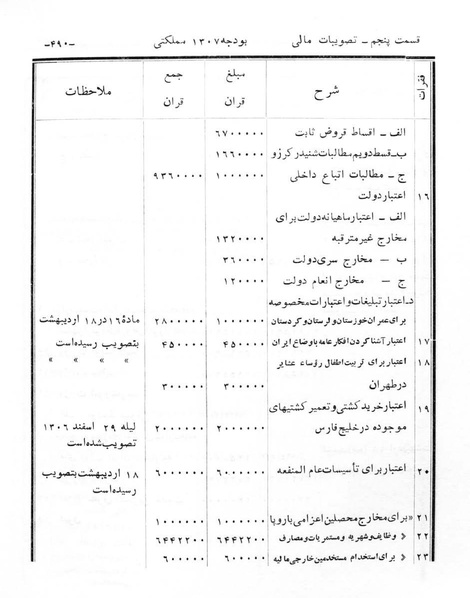 قسمت پنجم ـ تصویبات مالی بودجه ۱۳۰۷ مملکتی ـ۴۹۰ـ
فقرات شرح مبلغ قران جمع قران ملاحظات
الف ـ اقساط قروض ثابت ۶۷۰۰۰۰۰
ب ـ قسط دویم مطالبات شنیدر کرزو ۱۶۶۰۰۰۰
ج ـ مطالبات اتباع داخلی ۱۰۰۰۰۰۰ ۹۳۶۰۰۰۰
۱۶ اعتبار دولت
الف ـ اعتبار ماهیانه دولت برای
مخارج غیر مترقبه ۱۳۲۰۰۰۰
ب ـ مخارج سری دولت ۳۶۰۰۰۰
ج ـ مخارج انعام دولت ۱۲۰۰۰۰
د ـ اعتبار تبلیغات و اعتبارات مخصوصه
برای عمران خوزستان و لرستان و کردستان ۱۰۰۰۰۰۰ ۲۸۰۰۰۰۰ مادۀ ۱۶ در ۱۸ اردیبهشت
۱۷ اعتبار آشنا کردن افکار عامه باوضاع ایران ۴۵۰۰۰۰ ۴۵۰۰۰۰ بتصویب رسیده است
۱۸ اعتبار برای تربیت اطفال رؤساء عشایر » » » »
در طهران ۳۰۰۰۰۰ ۳۰۰۰۰۰
۱۹ اعتبار خرید کشتی و تعمیر کشتیهای
موجوده در خلیج فارس ۲۰۰۰۰۰۰ ۲۰۰۰۰۰۰ لیله ۲۹ اسفند ۱۳۰۶
تصویب شده است
۲۰ اعتبار برای تأسیسات عام المنفعه ۶۰۰۰۰۰۰ ۶۰۰۰۰۰۰ ۱۸ اردیبهشت بتصویب
رسیده است
۲۱ » برای مخارج محصلین اعزامی باروپا ۱۰۰۰۰۰۰ ۱۰۰۰۰۰۰
۲۲ » وظایف و شهریه و مستمریات و مصارف ۶۴۴۲۲۰۰ ۶۴۴۲۲۰۰
۲۳ » برای استخدام مستخدمین خارجی مالیه ۶۰۰۰۰۰ ۶۰۰۰۰۰